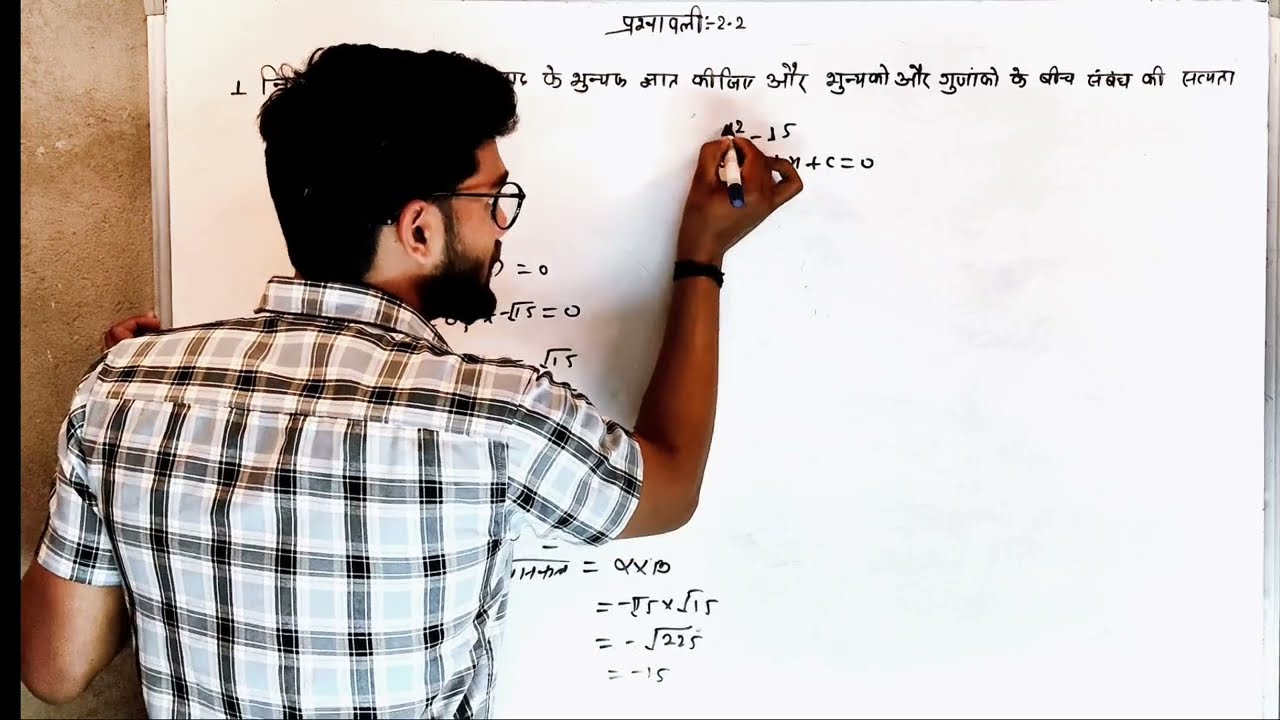 प्रश्नावली:-2.2
1 के शुन्यक ज्ञात कीजिए और शुन्यको और गुणांको के बीच संबंध की सत्यता
²-15
x+c=0
=0
-√15=0
√15
=
= α×β
=-√15×√15
=-√225
=-15